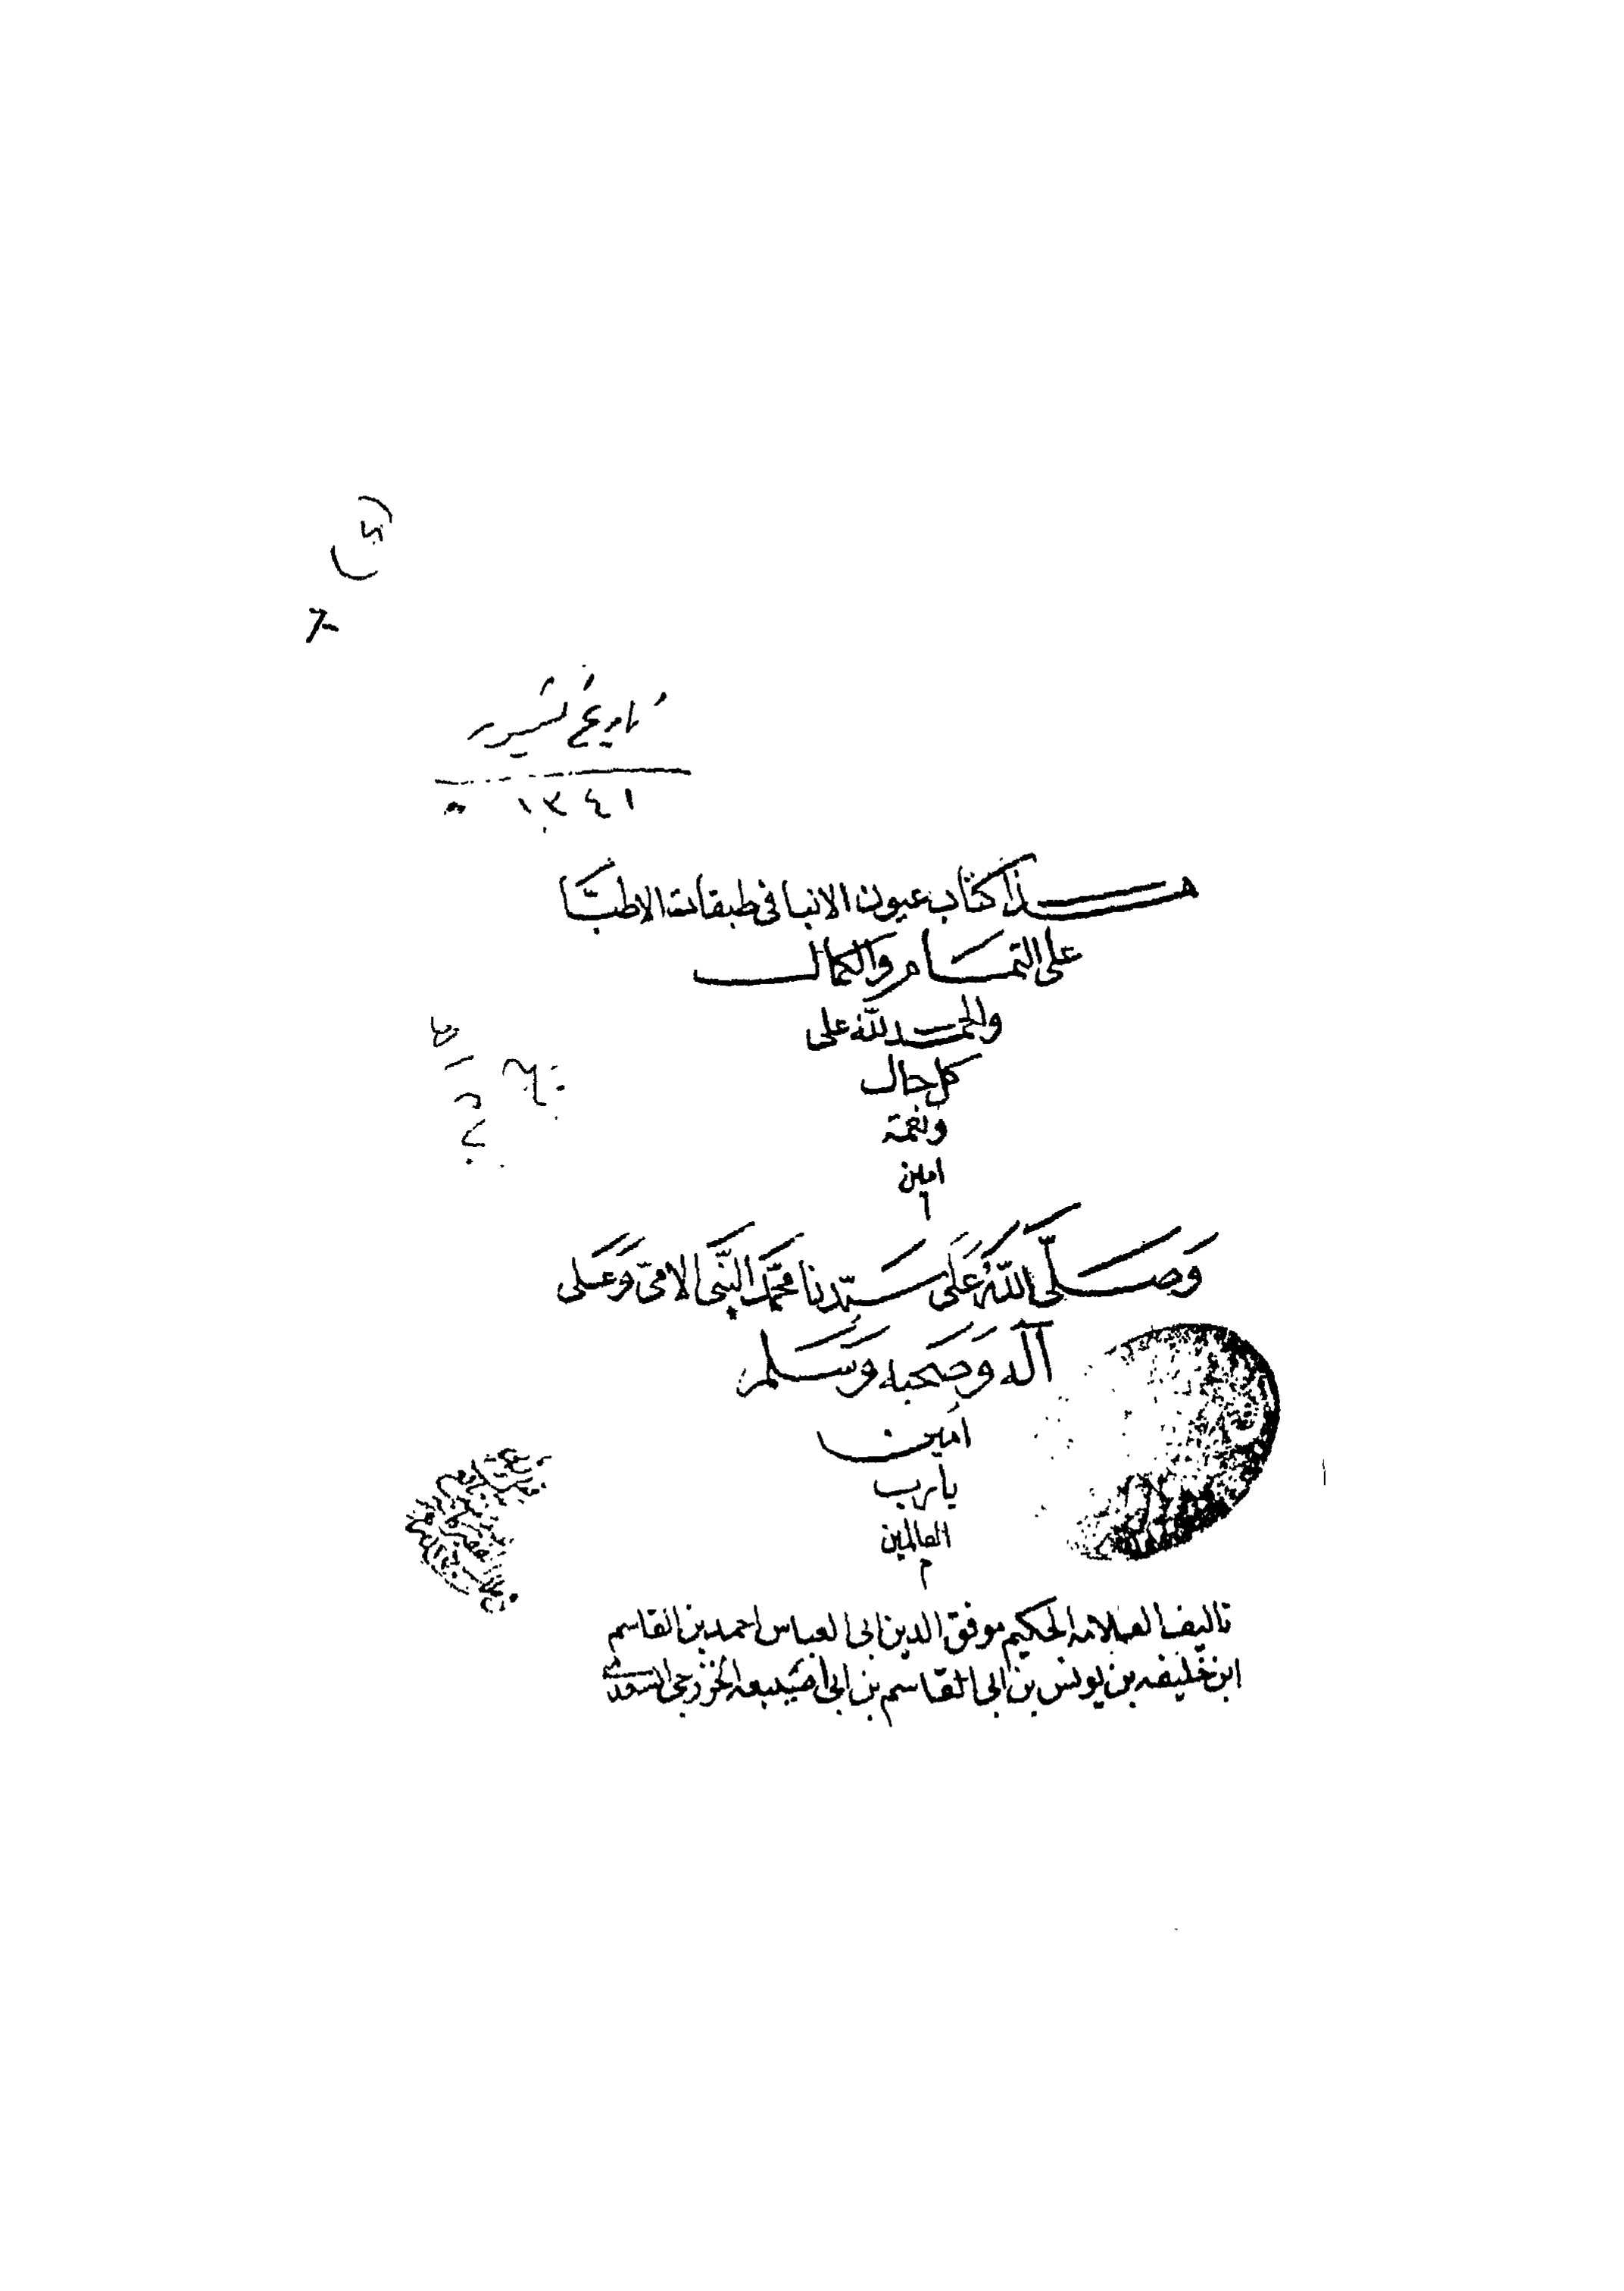 تاريخ
١٣٤١
هذا كتاب عيون الانبا فى طبقات الاطبَّا
على التمام والكمال
والحمد لله على
كل حال
ونعمة
امين
وَصَلَّى اللّٰهُ عَلَى سَيِّدنا محَمَّد النَّبَى الامىّ وَعَلى
آلَه وَصَحبه وَسَلم
امين
يارب
العالمين
م
تاليف العلامه الحكيم موفق الدين ابى العباس احمد بن القاسم
ابن خليفه بن يونس بن ابى القاسم بن ابى اصيبعه الخزرجى السعدى